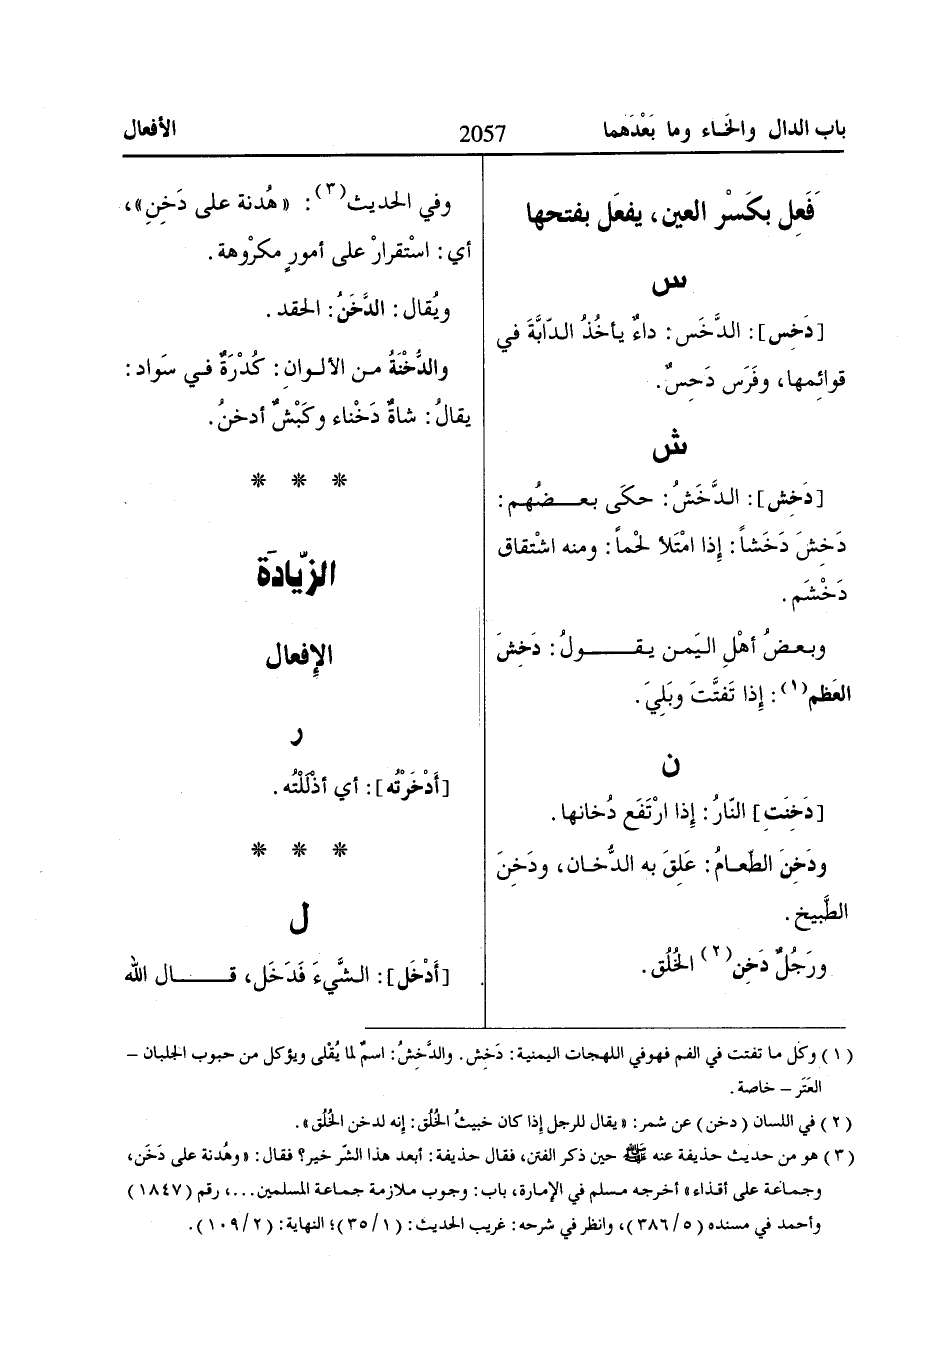 باب الدال والخاء وما بَعْدَهما
2057
الأفعال
فَعِل بكَسْر العين، يفعَل بفتحها
س
[دَخِس]: الدَّخَس: داءٌ يأخُذُ الدّابَّةَ في
قوائمها، وفَرَس دَحِسٌ.
ش
[دَخِش]: الدَّخَشُ: حكَى بعضُهم:
دَخِشَ دَخَشاً: إذا امْتَلأ لحْماً: ومنه اشْتقاق
دَخْشَم.
وبعضُ أهْلِ اليَمن يقولُ: دَخِشَ
العَظم(١): إذا تَفتَّتَ وبَلِيَ.
ن
[دَخِنَتِ] النّارُ: إذا ارْتَفَع دُخانها.
ودَخِنَ الطّعامُ: عَلِقَ به الدُّخان، ودَخِنَ
الطَّبيخ.
ورَجُلٌ دَخِن(٢) الخُلُق.
وفي الحديث(٣): «هُدنة على دَخَنِ»،
أي: اسْتقرارْ على أمورٍ مكرْوهة.
ويُقال: الدَّخَنُ: الحقد.
والدُّخْنَةُ من الألوانِ: كُدْرَةٌ في سَواد:
يقالُ: شاةٌ دَخْناء وكَبْشٌ أدخنُ.
* * *
الزّيادَة
الإفعال
ر
[أَدْخَرْتُه]: أي أذْلَلْتُه.
* * *
ل
[أَدْخَل]: الشَّيءَ فَدَخَل، قال الله
(١) وكل ما تفتت في الفم فهوفي اللهجات اليمنية: دَخِش. والدَّخِشُ: اسمٌ لما يُقْلى ويؤكل من حبوب الجلبان –
العَتَر – خاصة.
(٢) في اللسان (دخن) عن شمر: «يقال للرجل إذا كان خبيثُ الخُلُق: إنه لدخن الخُلُق».
(٣) هو من حديث حذيفة عنه ﷺ حين ذكر الفتن، فقال حذيفة: أبعد هذا الشّر خير؟ فقال: «وهُدنة على دَخَن،
وجماعة على أقذاء» أخرجه مسلم في الإمارة، باب: وجوب ملازمة جماعة المسلمين...، رقم (١٨٤٧)
وأحمد في مسنده (٥/ ٣٨٦)، وانظر في شرحه: غريب الحديث: (١/ ٣٥)؛ النهاية: (٢/ ١٠٩).